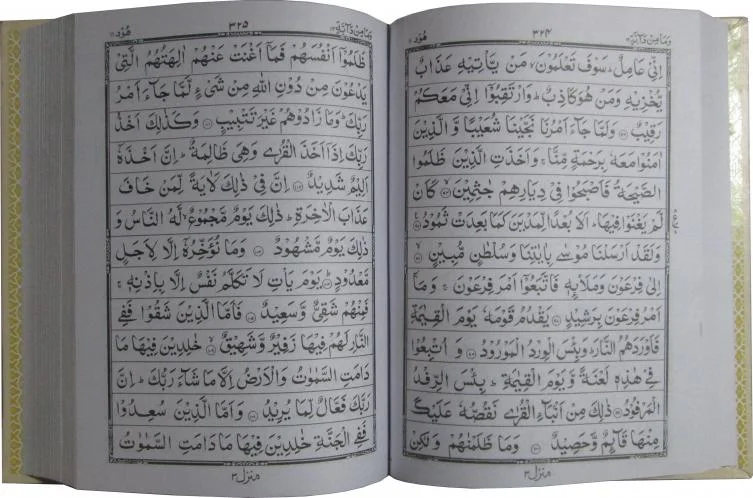 وَمَا مِنْ دَآبَّةٍ ١٢
٣٢٤
هُوْد ١١
اِنِّىْ عَامِلٌ ؕ سَوْفَ تَعْلَمُوْنَ ۙ مَنْ يَّاْتِيْهِ عَذَابٌ
يُّخْزِيْهِ وَمَنْ هُوَ كَاذِبٌ ؕ وَارْتَقِبُوْۤا اِنِّىْ مَعَكُمْ
رَقِيْبٌ ﴿٩٣﴾ وَلَمَّا جَآءَ اَمْرُنَا نَجَّيْنَا شُعَيْبًا وَّالَّذِيْنَ
اٰمَنُوْا مَعَهٗ بِرَحْمَةٍ مِّنَّا ۚ وَاَخَذَتِ الَّذِيْنَ ظَلَمُوا
الصَّيْحَةُ فَاَصْبَحُوْا فِىْ دِيَارِهِمْ جٰثِمِيْنَ ﴿٩٤﴾ كَاَنْ
لَّمْ يَغْنَوْا فِيْهَا ؕ اَلَا بُعْدًا لِّمَدْيَنَ كَمَا بَعِدَتْ ثَمُوْدُ ﴿٩٥﴾
وَلَقَدْ اَرْسَلْنَا مُوْسٰى بِاٰيٰتِنَا وَسُلْطٰنٍ مُّبِيْنٍ ﴿٩٦﴾
اِلٰى فِرْعَوْنَ وَمَلَا۟ئِهٖ فَاتَّبَعُوْۤا اَمْرَ فِرْعَوْنَ ۚ وَمَاۤ
اَمْرُ فِرْعَوْنَ بِرَشِيْدٍ ﴿٩٧﴾ يَقْدُمُ قَوْمَهٗ يَوْمَ الْقِيٰمَةِ
فَاَوْرَدَهُمُ النَّارَ ؕ وَبِئْسَ الْوِرْدُ الْمَوْرُوْدُ ﴿٩٨﴾ وَاُتْبِعُوْا
فِىْ هٰذِهٖ لَعْنَةً وَّيَوْمَ الْقِيٰمَةِ ؕ بِئْسَ الرِّفْدُ
الْمَرْفُوْدُ ﴿٩٩﴾ ذٰلِكَ مِنْ اَنْۢبَآءِ الْقُرٰى نَقُصُّهٗ عَلَيْكَ
مِنْهَا قَآئِمٌ وَّحَصِيْدٌ ﴿١٠٠﴾ وَمَا ظَلَمْنٰهُمْ وَلٰكِنْ
منزل ٣
وَمَا مِنْ دَآبَّةٍ ١٢
٣٢٥
هُوْد ١١
ظَلَمُوْۤا اَنْفُسَهُمْ فَمَاۤ اَغْنَتْ عَنْهُمْ اٰلِهَتُهُمُ الَّتِىْ
يَدْعُوْنَ مِنْ دُوْنِ اللّٰهِ مِنْ شَىْءٍ لَّمَّا جَآءَ اَمْرُ
رَبِّكَ ؕ وَمَا زَادُوْهُمْ غَيْرَ تَتْبِيْبٍ ﴿١٠١﴾ وَكَذٰلِكَ اَخْذُ
رَبِّكَ اِذَاۤ اَخَذَ الْقُرٰى وَهِىَ ظَالِمَةٌ ؕ اِنَّ اَخْذَهٗۤ
اَلِيْمٌ شَدِيْدٌ ﴿١٠٢﴾ اِنَّ فِىْ ذٰلِكَ لَاٰيَةً لِّمَنْ خَافَ
عَذَابَ الْاٰخِرَةِ ؕ ذٰلِكَ يَوْمٌ مَّجْمُوْعٌ ۙ لَّهُ النَّاسُ وَ
ذٰلِكَ يَوْمٌ مَّشْهُوْدٌ ﴿١٠٣﴾ وَمَا نُؤَخِّرُهٗۤ اِلَّا لِاَجَلٍ
مَّعْدُوْدٍ ﴿١٠٤﴾ يَوْمَ يَاْتِ لَا تَكَلَّمُ نَفْسٌ اِلَّا بِاِذْنِهٖ ۚ
فَمِنْهُمْ شَقِىٌّ وَّسَعِيْدٌ ﴿١٠٥﴾ فَاَمَّا الَّذِيْنَ شَقُوْا فَفِى
النَّارِ لَهُمْ فِيْهَا زَفِيْرٌ وَّشَهِيْقٌ ﴿١٠٦﴾ خٰلِدِيْنَ فِيْهَا مَا
دَامَتِ السَّمٰوٰتُ وَالْاَرْضُ اِلَّا مَا شَآءَ رَبُّكَ ؕ اِنَّ
رَبَّكَ فَعَّالٌ لِّمَا يُرِيْدُ ﴿١٠٧﴾ وَاَمَّا الَّذِيْنَ سُعِدُوْا
فَفِى الْجَنَّةِ خٰلِدِيْنَ فِيْهَا مَا دَامَتِ السَّمٰوٰتُ
منزل ٣